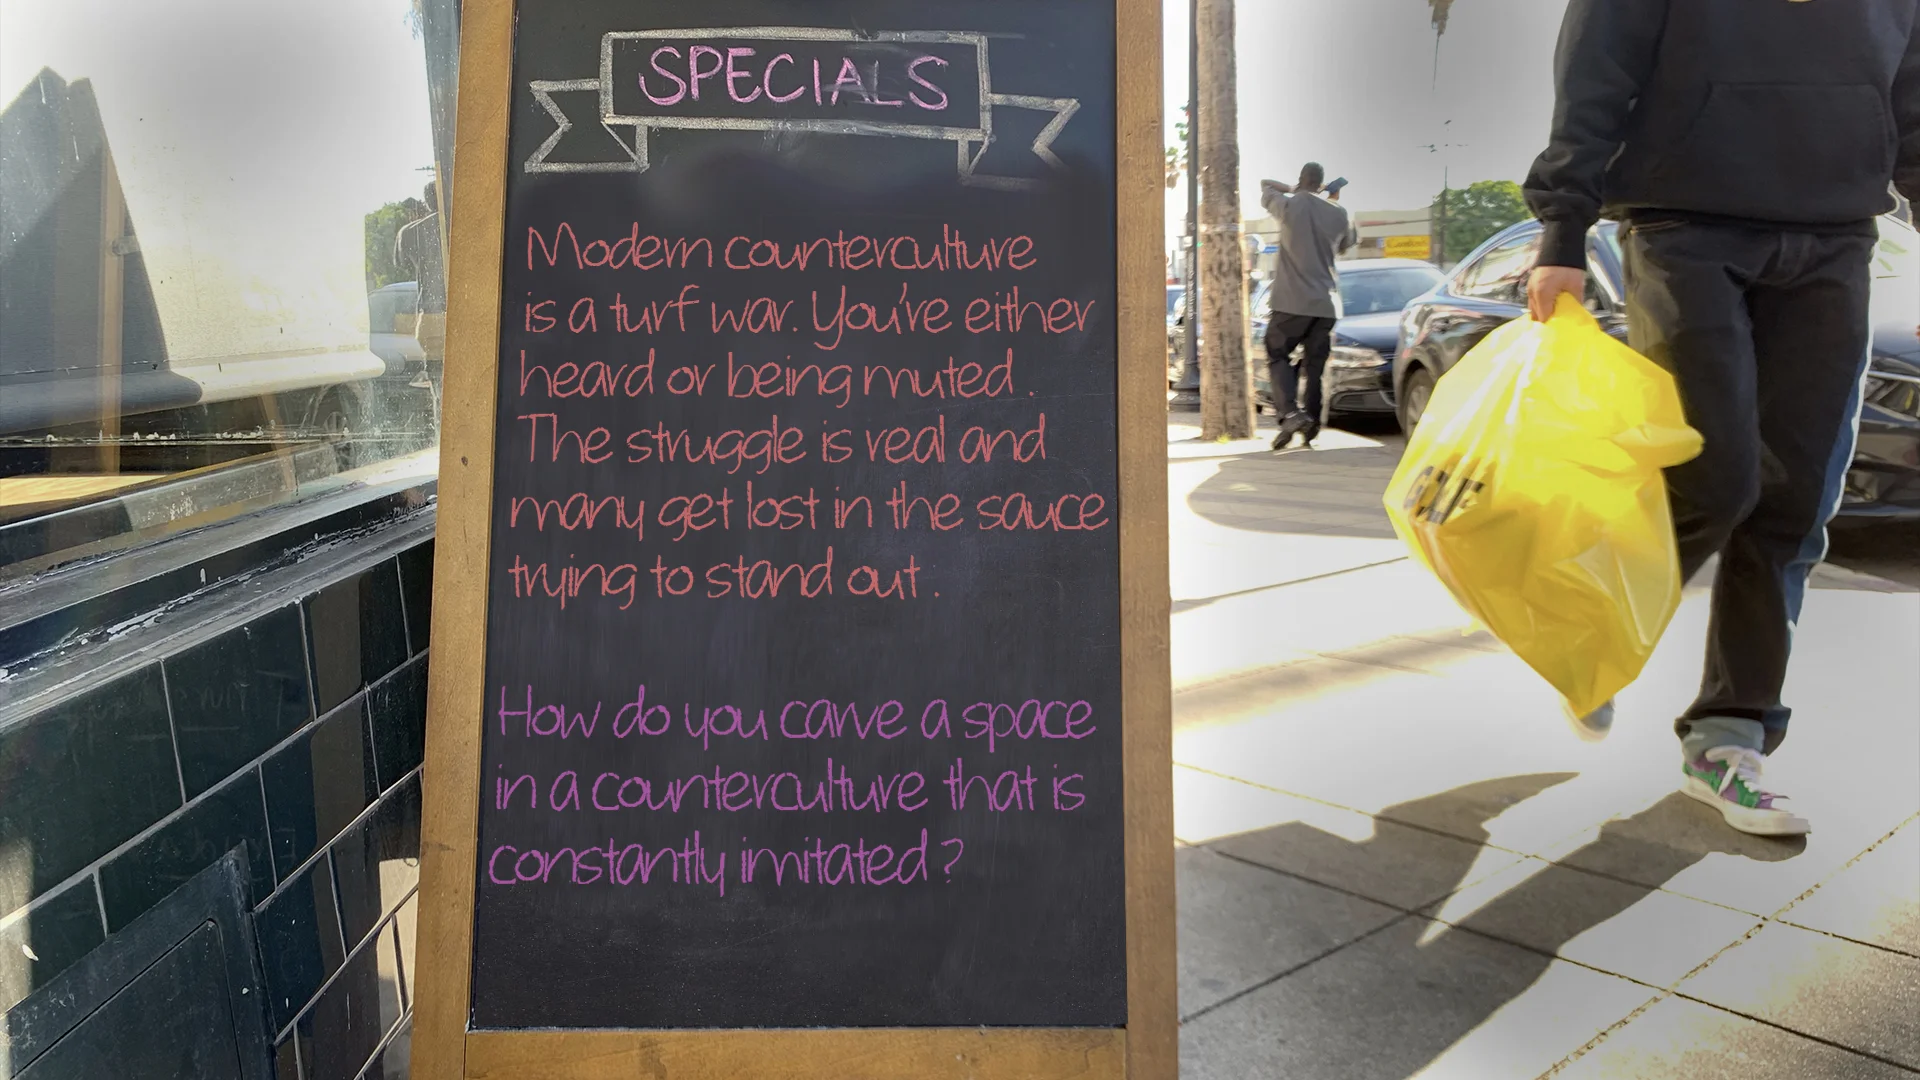 SPECIALS
Modern counterculture
is a turf war. You're either
heard or being muted.
The struggle is real and
many get lost in the sauce
trying to stand out.
How do you carve a space
in a counterculture that is
constantly imitated?